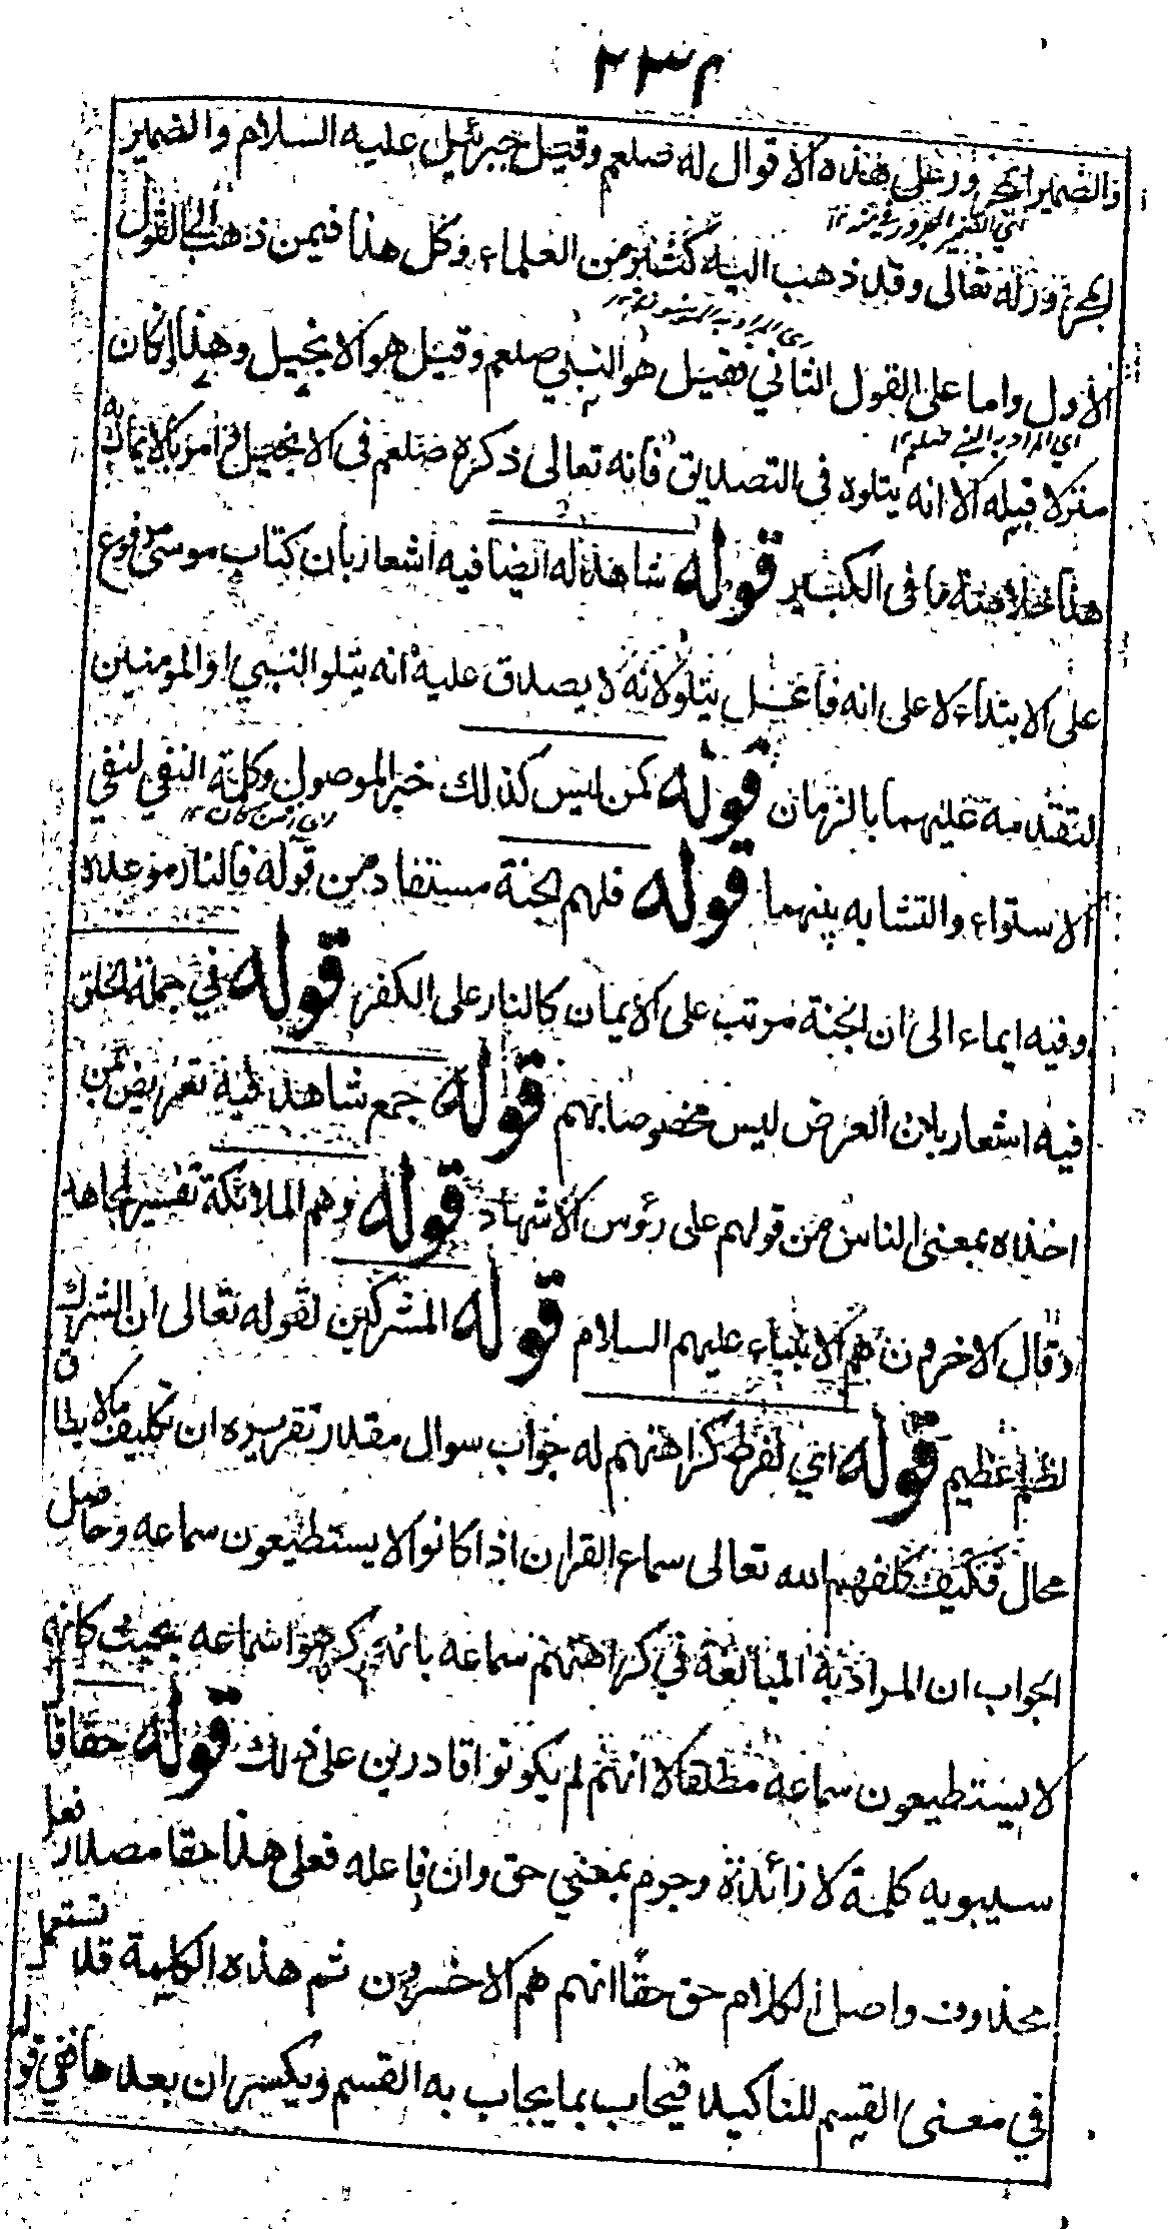 ٢٣٤
والضمير المجرور على هذه الاقوال له صلعم وقيل جبرئيل عليه السلام والضمير
المجرور له تعالى وقد ذهب اليه كثير من العلماء وكل هذا فيمن ذهب الى القول
الاول واما على القول الثاني فقيل هو النبي صلعم وقيل هو الانجيل وهذا وان كان
اي المراد به النبي صلعم ١٢
منزلا قبله الا انه يتلوه فى التصديق فانه تعالى ذكره صلعم فى الانجيل وامر بالايمان به
هذا خلاصة ما فى الكبير قوله شاهد له ايضا فيه اشعار بان كتاب موسى مرفوع
على الابتداء لا على انه فاعل يتلو لانه لا يصدق عليه انه يتلو النبي او المومنين
لتقدمه عليهما بالزمان قوله كمن ليس كذلك خبر الموصول وكلمة النفي لنفي
الاستواء والتشابه بينهما قوله فلهم الجنة مستفاد من قوله فالنار موعده
وفيه ايماء الى ان الجنة مرتب على الايمان كالنار على الكفر قوله في جملة الخلق
فيه اشعار بان العرض ليس مخصوصا بهم قوله جمع شاهد فيه تعريض بمن
اخذه بمعنى الناس من قولهم على رئوس الاشهاد قوله وهم الملائكة تفسير لمجاهد
وقال الاخرون هم الانبياء عليهم السلام قوله المشركين لقوله تعالى ان الشرك
لظلم عظيم قوله اي لفرط كراهتهم له جواب سوال مقدر تقريره ان تكليف مالا يطاق
محال فكيف كلفهم الله تعالى سماع القران اذا كانوا لا يستطيعون سماعه وحاصل
الجواب ان المراد به المبالغة في كراهتهم سماعه بانهم كرهوا سماعه بحيث كانهم
لا يستطيعون سماعه مطلقا لا انهم لم يكونوا قادرين على ذلك قوله حقا قال
سيبويه كلمة لا زائدة وجرم بمعني حق وان فاعله فعلى هذا حقا مصدر فعل
محذوف واصل الكلام حق حقا انهم هم الاخسرون ثم هذه الكلمة قد تستعمل
في معنى القسم للتاكيد فيجاب بما يجاب به القسم ويكسر ان بعدها في قوله